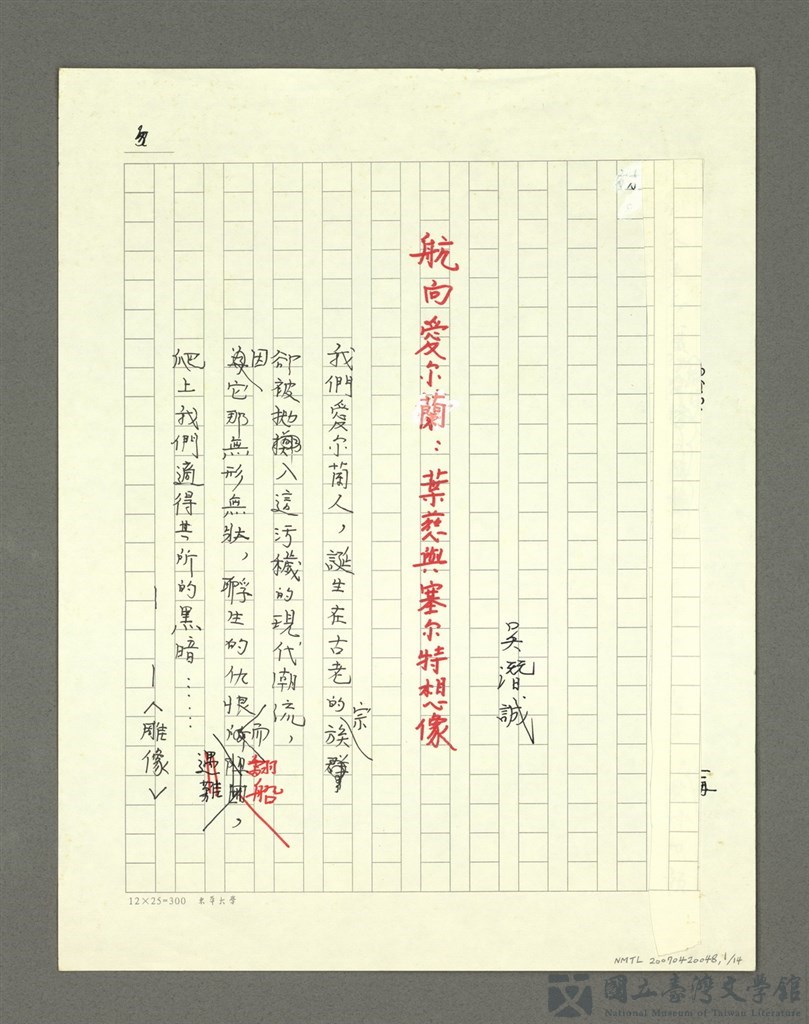 航向愛尔蘭：葉慈與塞尔特想像
吳潛誠
我們愛尔蘭人，誕生在古老的宗族
卻被拋擲入這污穢的現代潮流，
因它那無形無狀，孵生的仇恨而翻船
遇難，
爬上我們適得其所的黑暗……
——〈雕像〉
12×25=300 東華大學
NMTL 20070420048, 1/14
國立臺灣文學館
National Museum of Taiwan Literature